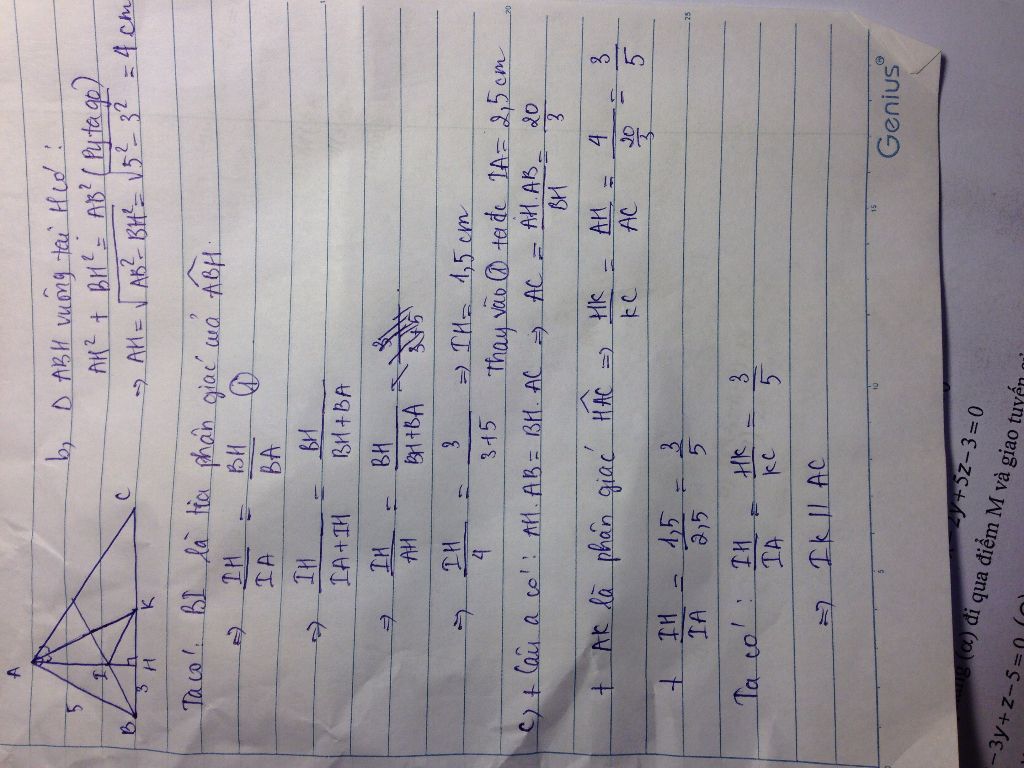 A
5
I
B
3
H
K
C
b, Δ ABH vuông tại H có:
AH² + BH² = AB² (Pytago)
=> AH = √AB² - BH² = √5² - 3² = 4 cm
Ta có: BI là tia phân giác của ABH.
=> IH/IA = BH/BA ①
=> IH/IA+IH = BH/BH+BA
=> IH/AH = BH/BH+BA =
=> IH/4 = 3/3+5 => IH = 1,5 cm
Thay vào ① ta đc IA = 2,5 cm
c) + Câu a có: AH.AB = BH.AC => AC = AH.AB/BH = 20/3
+ AK là phân giác HAC => HK/KC = AH/AC = 4/20/3 = 3/5
+ IH/IA = 1,5/2,5 = 3/5
Ta có: IH/IA = HK/KC = 3/5
=> IK // AC
Genius
5
10
15
20
25
2y + 5z - 3 = 0
(α) đi qua điểm M và giao tuyến
- 3y + z - 5 = 0